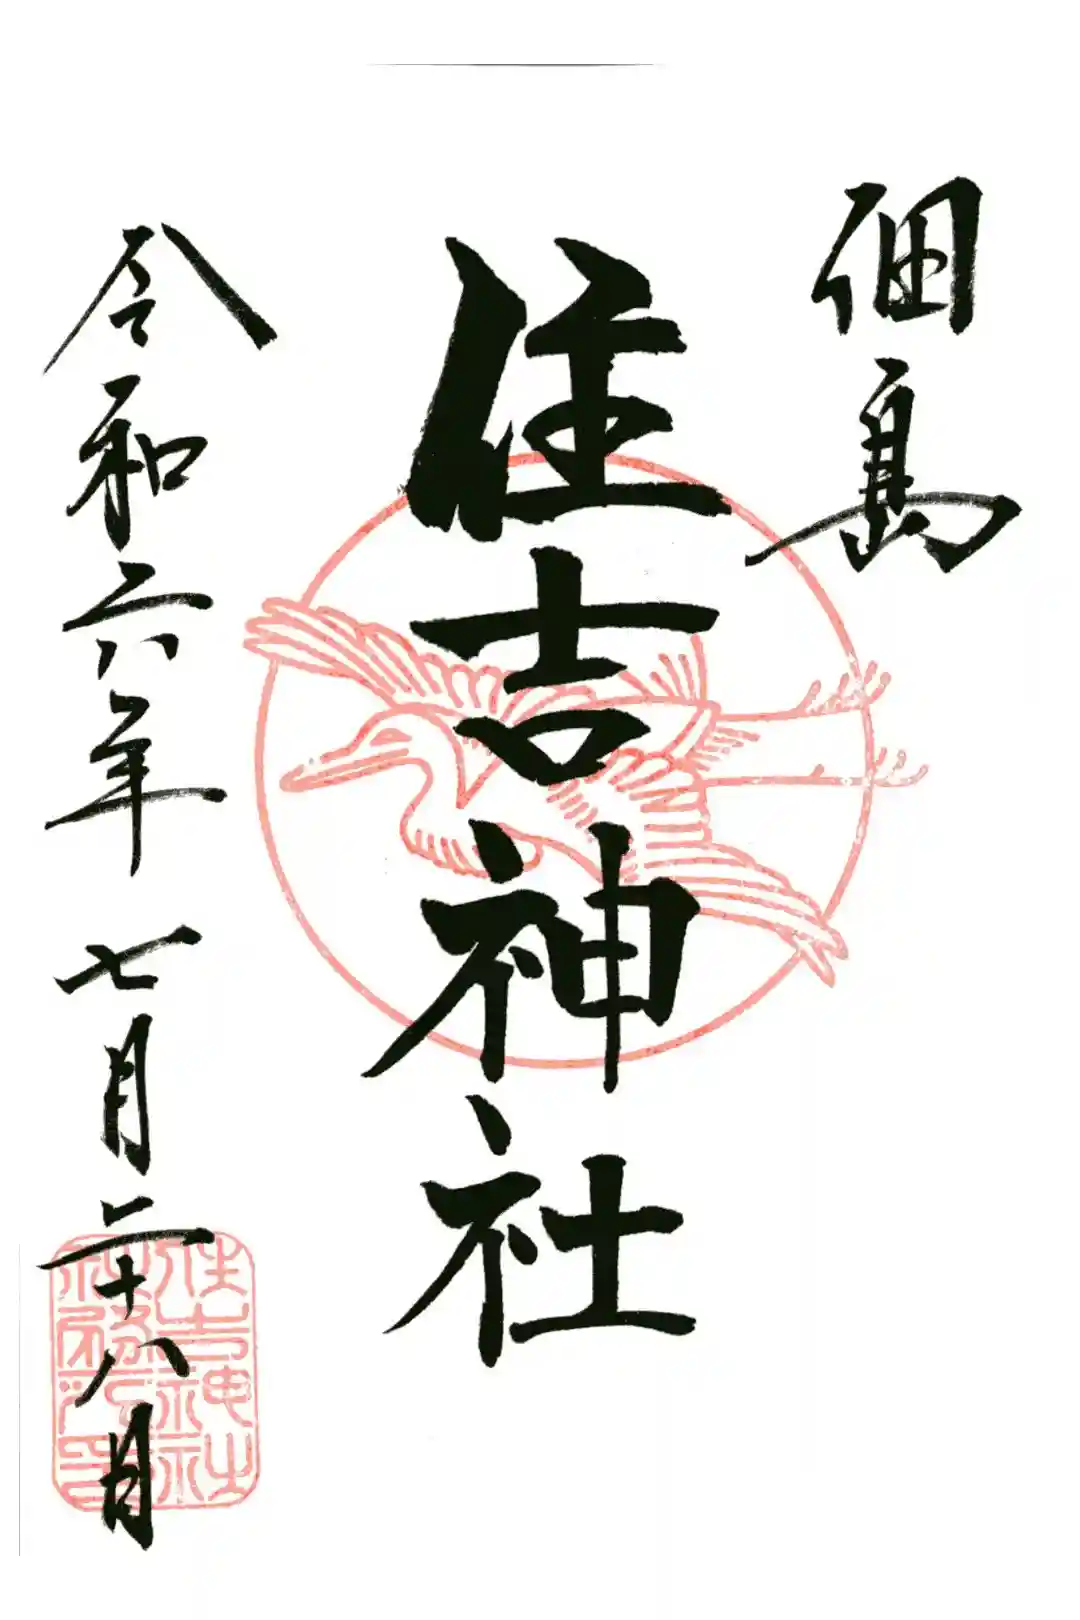 佃島
住吉神社
令和六年七月二十八日
住吉神社